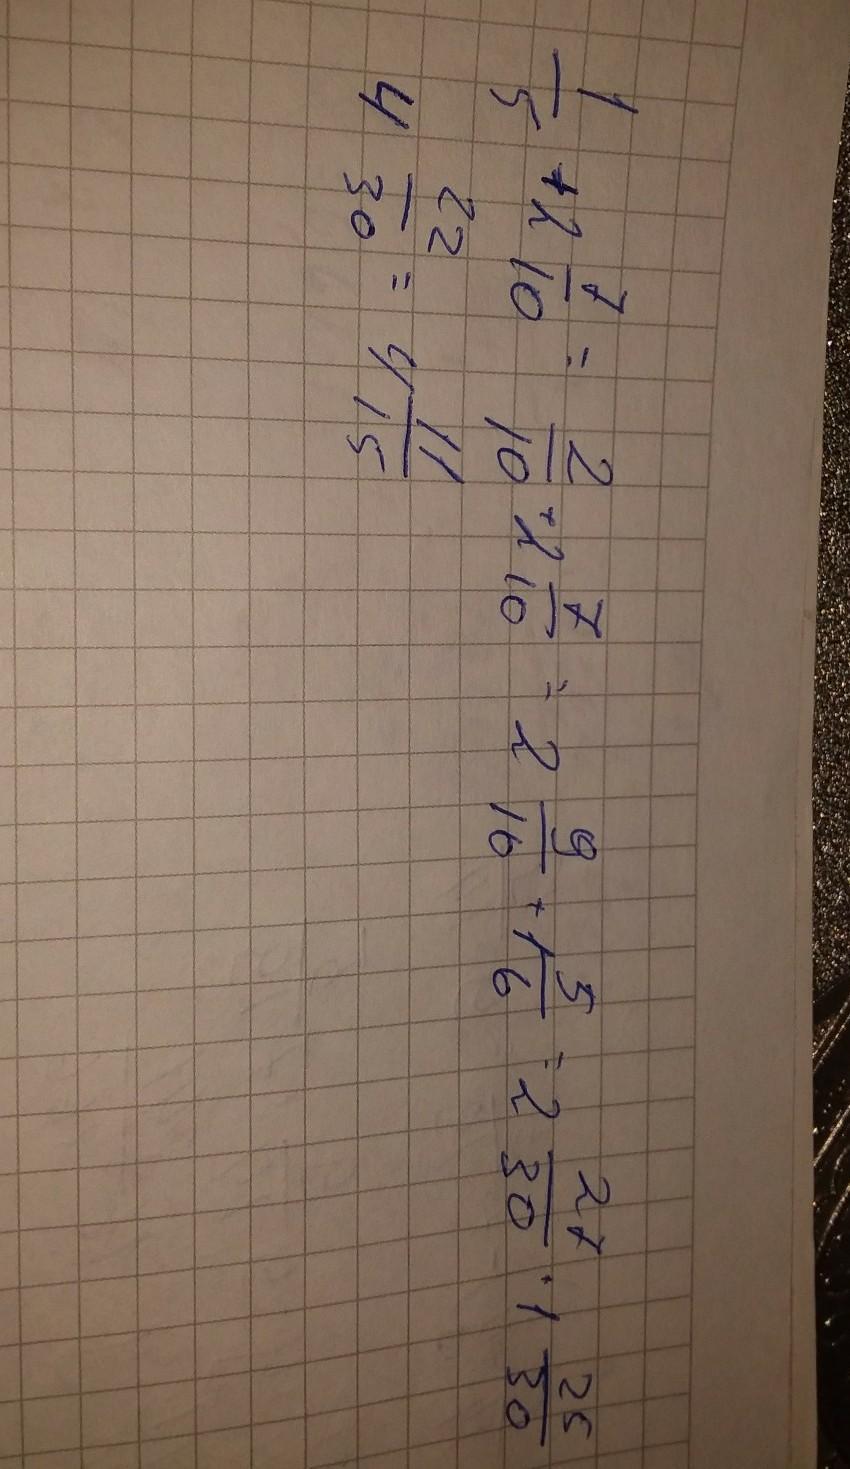 1/5 + 2 7/10 = 2/10 + 2 7/10 = 2 9/10 + 1 5/6 = 2 27/30 + 1 25/30
4 22/30 = 4 11/15